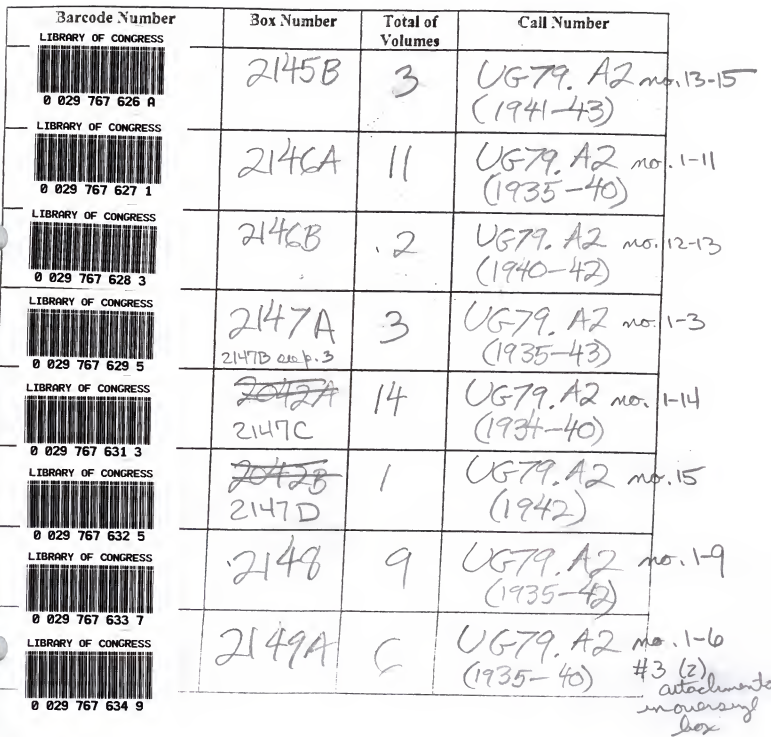 Barcode Number Box Number Total of Volumes Call Number
LIBRARY OF CONGRESS
0 029 767 626 A
2145B 3 UG79. A2 no. 13-15
(1941-43)
LIBRARY OF CONGRESS
0 029 767 627 1
2146A 11 UG79. A2 no. 1-11
(1935-40)
LIBRARY OF CONGRESS
0 029 767 628 3
2146B 2 UG79. A2 no. 12-13
(1940-42)
LIBRARY OF CONGRESS
0 029 767 629 5
2147A 3 UG79. A2 no. 1-3
2147B see p. 3 (1935-43)
LIBRARY OF CONGRESS
0 029 767 631 3
2042A 14 UG79. A2 no. 1-14
2147C (1934-40)
LIBRARY OF CONGRESS
0 029 767 632 5
2042B 1 UG79. A2 no. 15
2147D (1942)
LIBRARY OF CONGRESS
0 029 767 633 7
2148 9 UG79. A2 no. 1-9
(1935-42)
LIBRARY OF CONGRESS
0 029 767 634 9
2149A 6 UG79. A2 no. 1-6
(1935-40) #3 (2)
attachments
in oversized
box